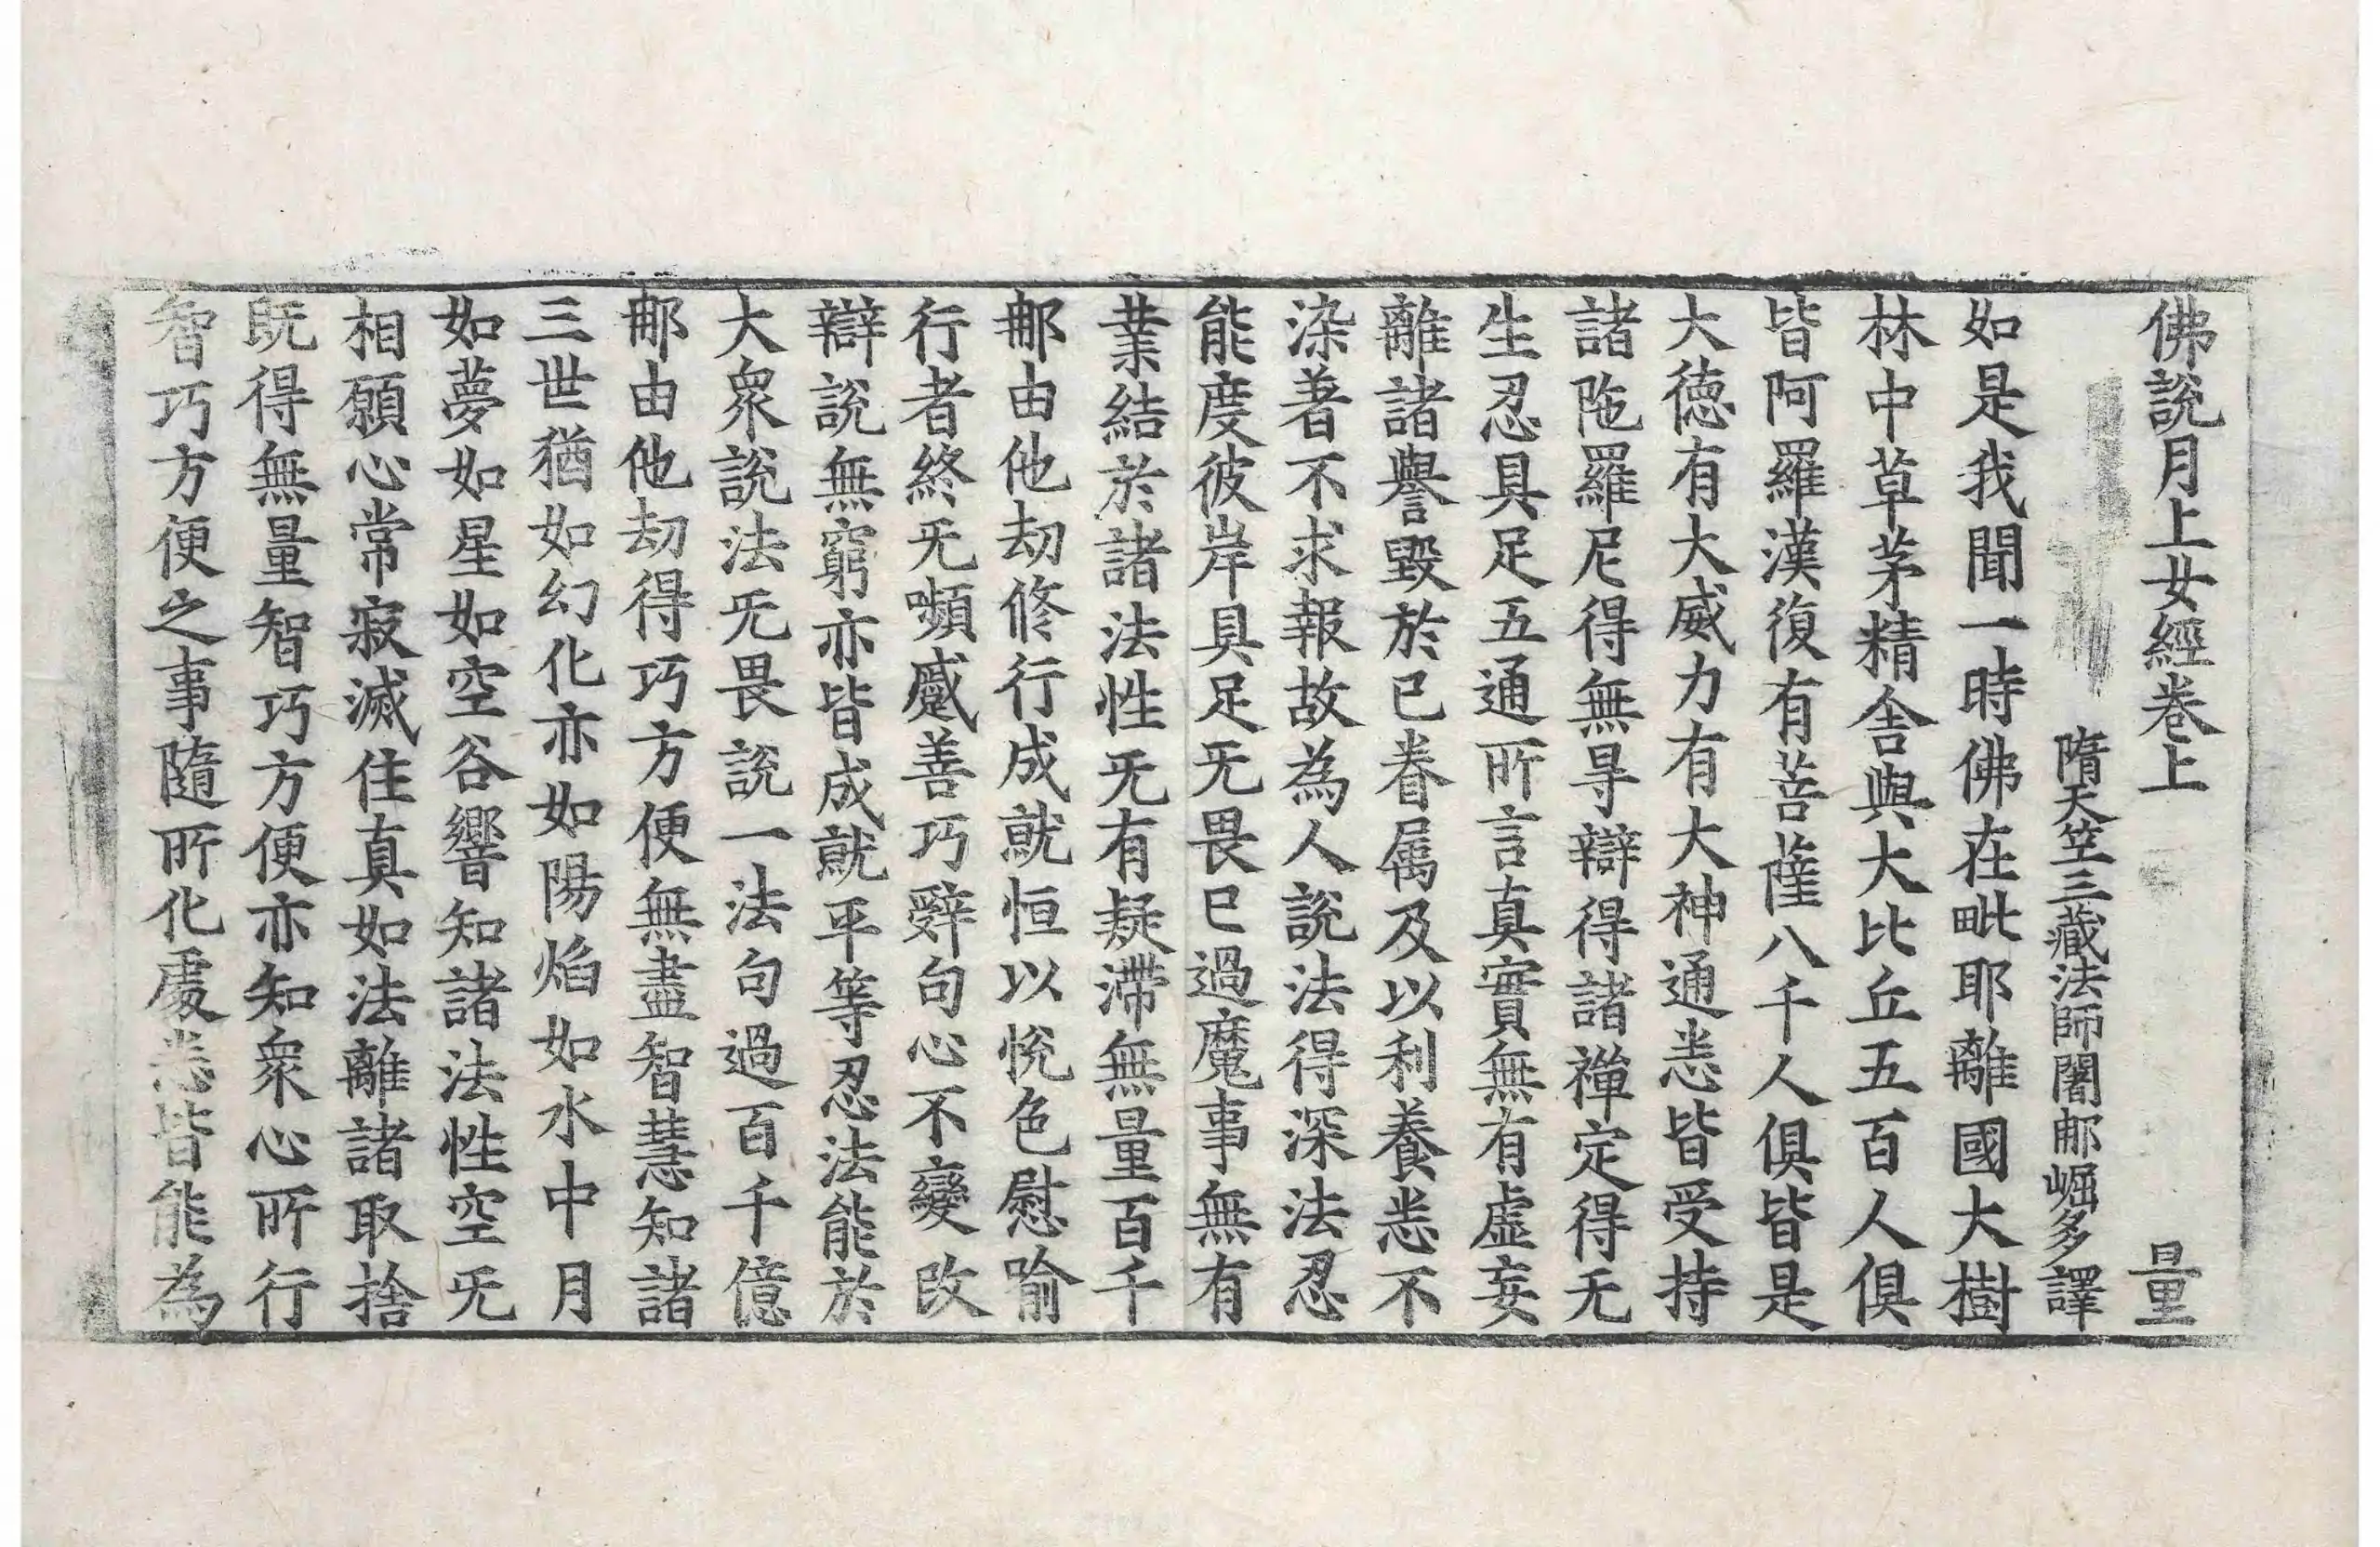 佛說月上女經卷上 量
隋天笁三藏法師闍那崛多譯
如是我聞一時佛在毗耶離國大樹
林中草茅精舍與大比丘五百人俱
皆阿羅漢復有菩薩八千人俱皆是
大德有大威力有大神通悉皆受持
諸陁羅尼得無㝵辯得諸禪定得无
生忍具足五通所言真實無有虛妄
離諸譽毀於已眷屬及以利養悉不
染著不求報故為人說法得深法忍
能度彼岸具足无畏已過魔事無有
業結於諸法性无有疑滯無量百千
那由他劫修行成就恒以悅色慰喻
行者終无嚬蹙善巧辭句心不變改
辯說無窮亦皆成就平等忍法能於
大衆說法无畏說一法句過百千億
那由他劫得巧方便無盡智慧知諸
三世猶如幻化亦如陽焰如水中月
如夢如星如空谷響知諸法性空无
相願心常寂滅住真如法離諸取捨
既得無量智巧方便亦知衆心所行
智巧方便之事隨所化處悉皆能為